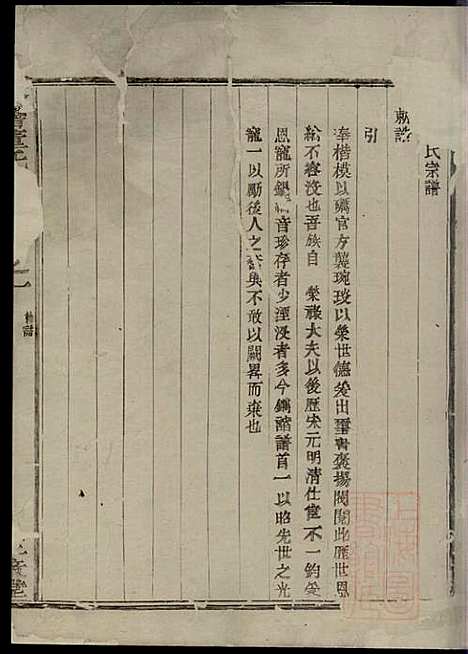 氏宗譜
敕誥
引
奉楷模以礪官方襲琬琰以榮世德後出璽書褒揚閥閱此歷世恩
綸不容沒也吾族自 榮祿大夫以後歷宋元明清仕宦不一鈞受
恩寵所錫 音珍存者少湮沒者多今鐫誥譜首一以昭先世之光
寵一以勵後人之 與不敢以闕畧而棄也